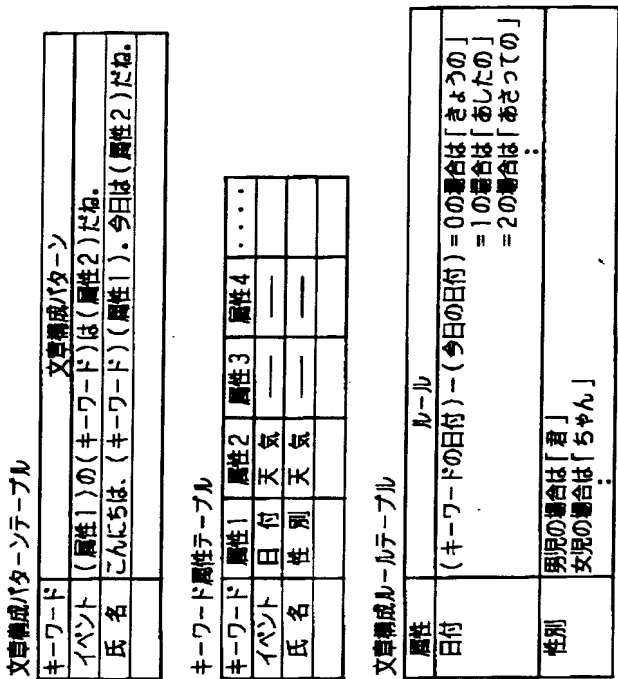 文章構成パターンテーブル
キーワード 文章構成パターン
イベント (属性1)の(キーワード)は(属性2)だね。
氏名 こんにちは、(キーワード)(属性1)。今日は(属性2)だね。
キーワード属性テーブル
キーワード 属性1 属性2 属性3 属性4 ・・・・
イベント 日付 天気 —— ——
氏名 性別 天気 —— ——
文章構成ルールテーブル
属性 ルール
日付 (キーワードの日付)−(今日の日付)=0の場合は「きょうの」
=1の場合は「あしたの」
=2の場合は「あさっての」
:
性別 男児の場合は「君」
女児の場合は「ちゃん」
: